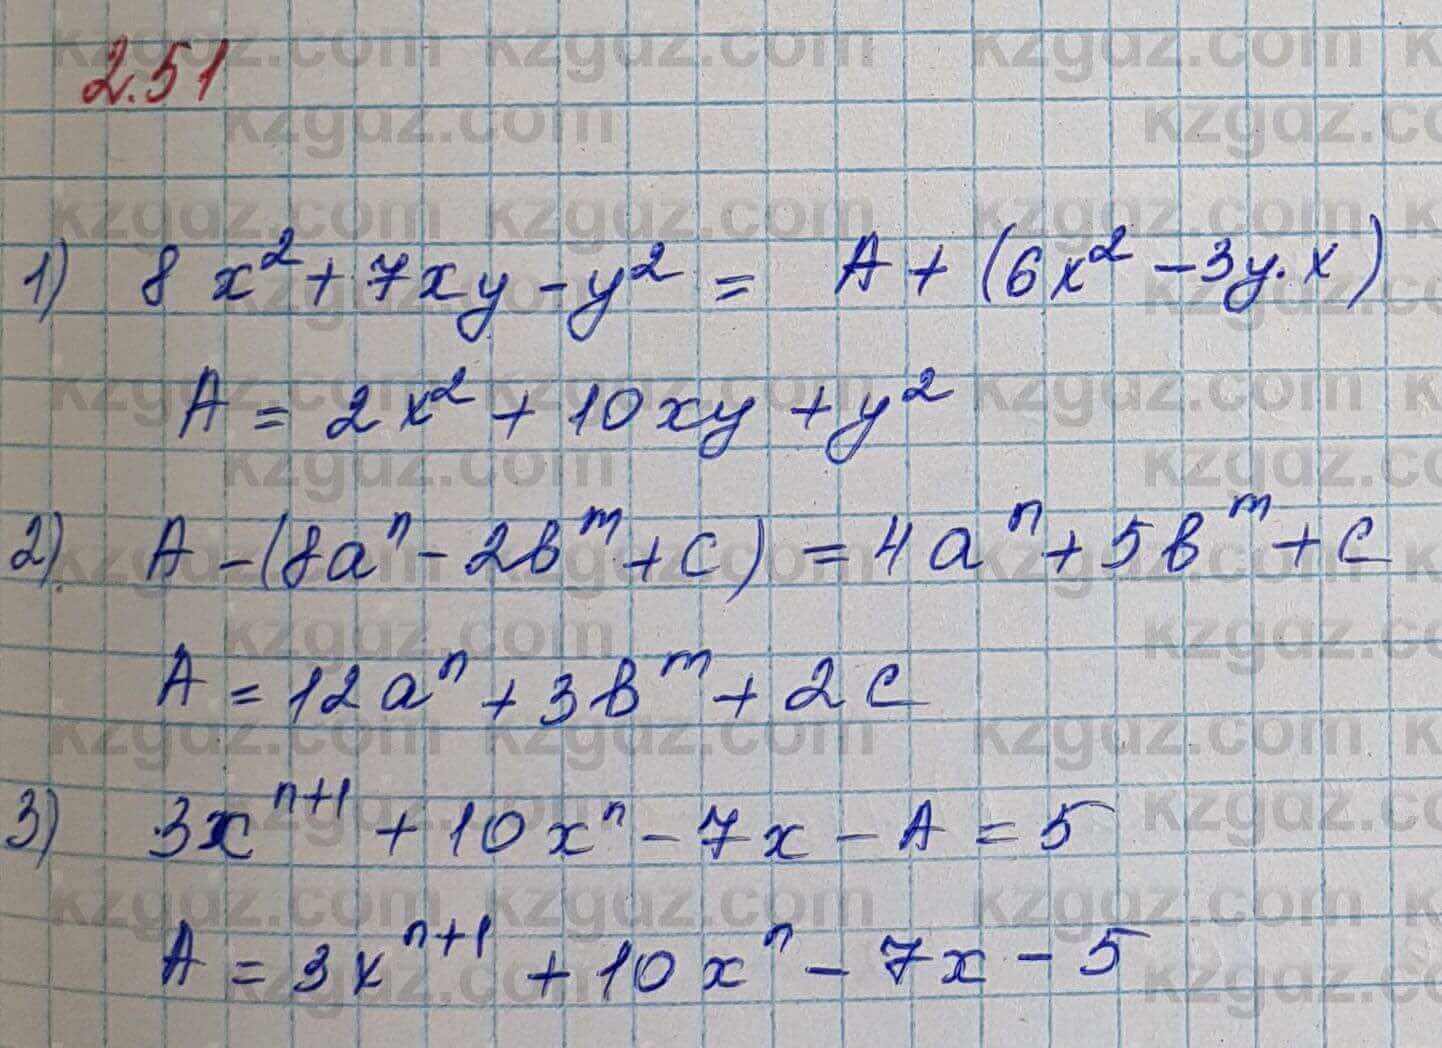 2.51
1) 8x² + 7xy - y² = A + (6x² - 3y·x)
A = 2x² + 10xy + y²
2) A - (8aⁿ - 2bᵐ + c) = 4aⁿ + 5bᵐ + c
A = 12aⁿ + 3bᵐ + 2c
3) 3xⁿ⁺¹ + 10xⁿ - 7x - A = 5
A = 3xⁿ⁺¹ + 10xⁿ - 7x - 5
kzgdz.com